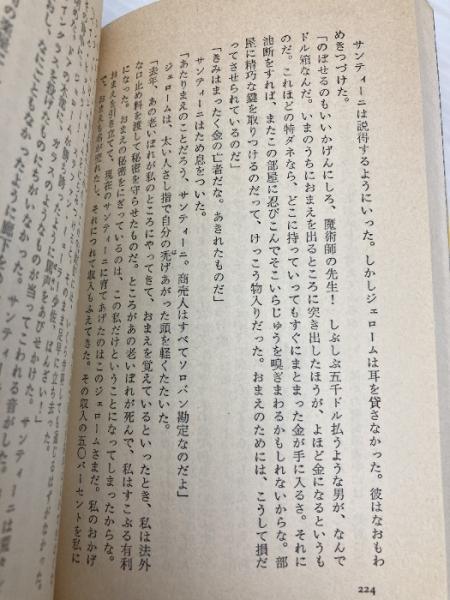 サンティーニは説得するようにいった。しかしジェロームは耳を貸さなかった。彼はなおもわ
めきつづけた。
「のぼせるのもいいかげんにしろ、魔術師の先生！　しぶしぶ五千ドル払うような男が、なんで
ドル箱なんだ。いまのうちにおまえを出るところに突き出したほうが、よほど金になるというも
のだ。これほどの特ダネなら、どこに持っていってもすぐにまとまった金が手に入るさ。それに
油断をすれば、またこの部屋に忍びこんでそこいらじゅうを嗅ぎまわるかもしれないからな。部
屋に精巧な鍵を取りつけるのだって、けっこう物入りだった。おまえのためには、こうして損だ
ってさせられているのだ」
「きみはまったく金の亡者だな。あきれたものだ」
サンティーニはため息をついた。
「あたりまえのことだろう、サンティーニ。商売人はすべてソロバン勘定なのだよ」
ジェロームは、太い人さし指で自分の禿げあがった頭を軽くたたいた。
「去年、あの老いぼれが私のところにやってきて、おまえを覚えているといったとき、私は法外
な口止め料を渡して秘密を守らせたものだ。ところがあの老いぼれが死んで、私はすこぶる有利
になった。おまえの秘密をにぎっているのは、この私だけということになってしまったからな。
おまえを引き立てて、現在のサンティーニに育てあげたのはこのジェロームさまだ。私のおかげ
で、おまえの名が売れたし、それにつれて収入もふえてきた。その収入の五〇パーセントを私に
224